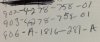 902-4278-758-01
903-4278-758-01
906-A-1816-287-A